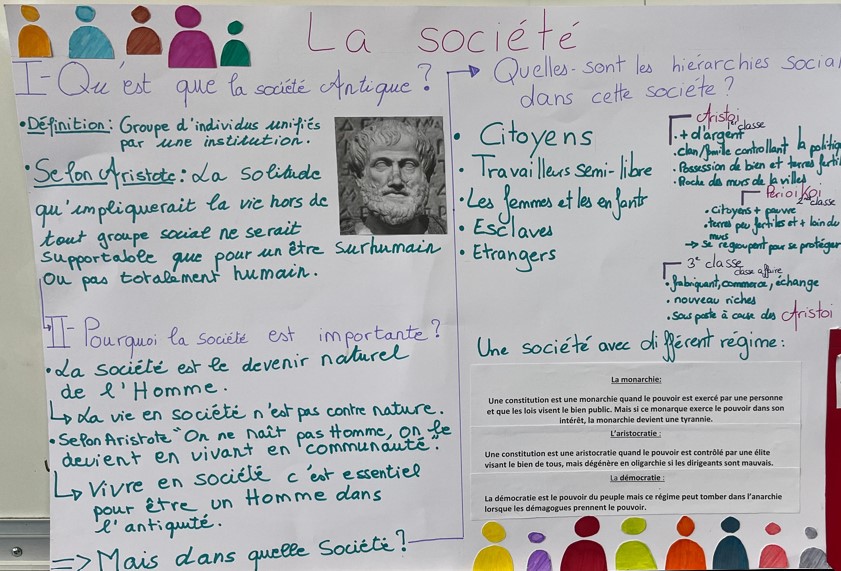 La société
I- Qu'est que la société Antique?
• Définition: Groupe d'individus unifiés
par une institution.
• Selon Aristote: La solitude
qu'impliquerait la vie hors de
tout groupe social ne serait
supportable que pour un être surhumain
ou pas totalement humain.
II- Pourquoi la société est importante?
• La société est le devenir naturel
de l'Homme.
↳ La vie en société n'est pas contre nature.
• Selon Aristote "On ne naît pas Homme, on le
devient en vivant en communauté".
↳ Vivre en société c'est essentiel
pour être un Homme dans
l'antiquité.
=> Mais dans quelle Société?
Quelles-sont les hiérarchies social
dans cette société?
• Citoyens
• Travailleurs semi-libre
• Les femmes et les enfants
• Esclaves
• Etrangers
Aristoi
classe
. + d'argent
. clan/famille controllant la politiq
. Possession de bien et terres fertil
. Proche des murs de la villes
Perioikoi
2nd classe
• Citoyens + pauvre
. terres peu fertiles et + loin du
murs
→ Se regroupent pour se protéger
3e classe
classe affaire
. fabriquant, commerce, échange
. nouveau riches
. Sous poste à cause des Aristoi
Une société avec différent régime:
La monarchie:
Une constitution est une monarchie quand le pouvoir est exercé par une personne
et que les lois visent le bien public. Mais si ce monarque exerce le pouvoir dans son
intérêt, la monarchie devient une tyrannie.
L'aristocratie :
Une constitution est une aristocratie quand le pouvoir est contrôlé par une élite
visant le bien de tous, mais dégénère en oligarchie si les dirigeants sont mauvais.
La démocratie :
La démocratie est le pouvoir du peuple mais ce régime peut tomber dans l'anarchie
lorsque les démagogues prennent le pouvoir.